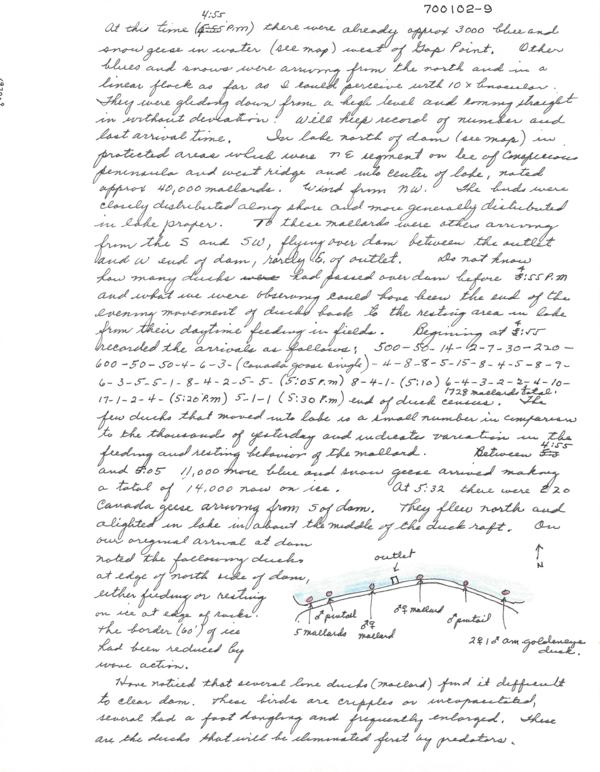 700102-9
4:55
At this time (5:55 P.m) there were already approx 3000 blue and
snow geese in water (see map) west of Gap Point. Other
blues and snows were arriving from the north and in a
linear flock as far as I could perceive with 10x binocular.
They were gliding down from a high level and coming straight
in without deviation. Will keep record of number and
last arrival time. In lake north of dam (see map) in
protected areas which were NE segment on lee of Conspicuous
peninsula and west ridge and into center of lake, noted
approx 40,000 mallards. Wind from NW. The birds were
closely distributed along shore and more generally distributed
in lake proper. To these mallards were others arriving
from the S and SW, flying over dam between the outlet
and W end of dam, rarely E. of outlet. Do not know
how many ducks were had passed over dam before 4:55 P.m
and what we were observing could have been the end of the
evening movement of ducks back to the resting area in lake
from their daytime feeding in fields. Begining at 4:55
recorded the arrivals as follows; 500-50-14-2-7-30-220-
600-50-50-4-6-3-(Canada goose single)-4-8-8-5-15-8-4-5-8-9-
6-3-5-5-1-8-4-2-5-5-(5:05 P.m) 8-4-1-(5:10) 6-4-3-2-2-4-10-
17-1-2-4-(5:20 P.m) 5-1-1 (5:30 P.m) end of duck census. 1728 mallards total. The
few ducks that moved into lake is a small number in comparison
to the thousands of yesterday and indicate variation in the
feeding and resting behavior of the mallard. Between 4:55
and 5:05 11,000 more blue and snow geese arrived making
a total of 14,000 now on ice. At 5:32 there were 220
Canada geese arriving from S of dam. They flew north and
alighted in lake in about the middle of the duck raft. On
our original arrival at dam
noted the following ducks
at edge of north side of dam,
either feeding or resting
on ice at edge of rocks.
The border (60') of ice
had been reduced by
wave action.
outlet
N
5 mallards
♂ pintail
♂♀ mallard
♂♀ mallard
♂ pintail
2♀ 1♂ am goldeneye duck.
Have noticed that several lone ducks (mallard) find it difficult
to clear dam. These birds are cripples or incapacitated,
several had a foot dangling and frequently enlarged. These
are the ducks that will be eliminated first by predators.